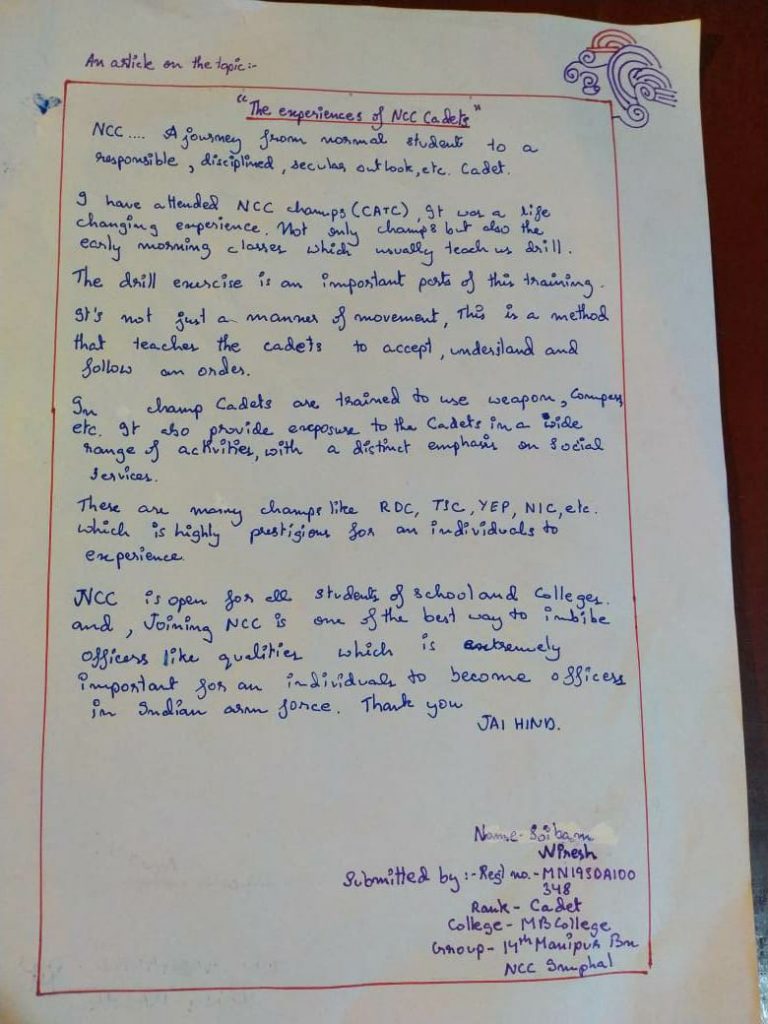 An article on the topic:-
"The experiences of NCC Cadets"
NCC.... A journey from normal student to a
responsible, disciplined, secular outlook, etc. Cadet.
I have attended NCC champs (CATC), It was a life
changing experience. Not only champs but also the
early morning classes which usually teach us drill.
The drill exercise is an important parts of this training.
It's not just a manner of movement, This is a method
that teaches the cadets to accept, understand and
follow an order.
In champ Cadets are trained to use weapon, Compass
etc. It also provide exposure to the Cadets in a wide
range of activities, with a distinct emphasis on Social
Services.
There are many champs like RDC, TSC, YEP, NIC, etc.
which is highly prestigious for an individuals to
experience.
NCC is open for all students of school and Colleges.
and, Joining NCC is one of the best way to imbibe
officers like qualities which is extremely
important for an individuals to become officers
in Indian arm force. Thank you
JAI HIND.
Name- Soibam
Niresh
Submitted by:- Regl no.- MN19SDA100
348
Rank- Cadet
College- MB College
Group- 14th Manipur Bn
NCC Imphal